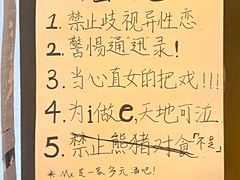 1.禁止歧视异性恋
2.警惕通迅录!
3.当心直女的把戏!!!
4.为i做e,天地可泣
5.禁止熊猪对食「不是」
* Mx是一家多元酒吧!